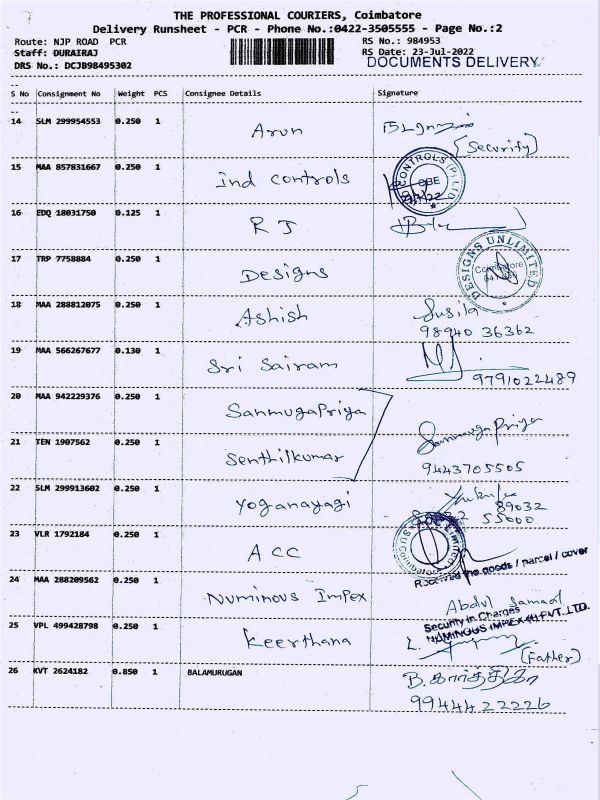 THE PROFESSIONAL COURIERS, Coimbatore
Delivery Runsheet - PCR - Phone No.:0422-3505555 - Page No.:2
Route: NJP ROAD PCR RS No.: 984953
Staff: DURAIRAJ RS Date: 23-Jul-2022
DRS No.: DCJB98495302 DOCUMENTS DELIVERY
S No Consignment No Weight PCS Consignee Details Signature
14 SLM 299954553 0.250 1 Arun
(Security)
15 MAA 857831667 0.250 1 Ind controls CONTROLS (P) LTD CBE
16 EDQ 18031750 0.125 1 R J
17 TRP 7758884 0.250 1 Designs DESIGNS UNLIMITED Coimbatore
18 MAA 288812075 0.250 1 Ashish Susila
98940 36362
19 MAA 566267677 0.130 1 Sri Sairam
9791022489
20 MAA 942229376 0.250 1 SanmugaPriya
21 TEN 1907562 0.250 1 Senthilkumar SanmugaPriya
9443705505
22 SLM 299913602 0.250 1 Yoganayagi
89032
55000
23 VLR 1792184 0.250 1 ACC
Received the goods / parcel / cover
24 MAA 288209562 0.250 1 Numinous Impex Abdul Samad
Security in Charges
NUMINOUS IMPEX (I) PVT. LTD.
25 VPL 499428798 0.250 1 Keerthana
(Father)
26 KVT 2624182 0.850 1 BALAMURUGAN B. கார்த்திகா
9944422226